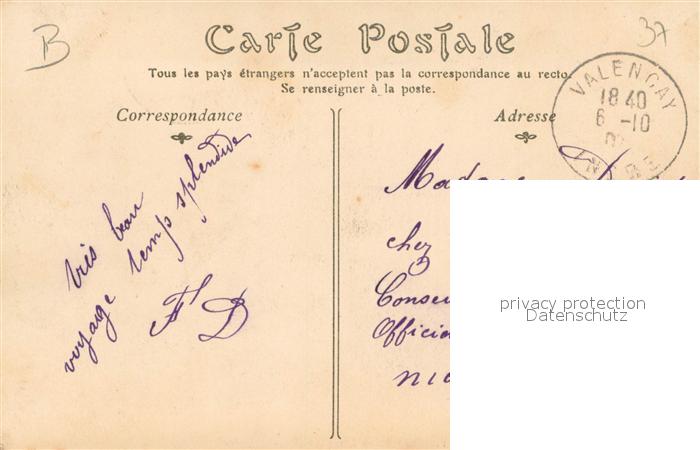 B
37
Carte Postale
Tous les pays étrangers n'acceptent pas la correspondance au recto.
Se renseigner à la poste.
Correspondance
Adresse
VALENCAY
18 40
6 -10
très beau
voyage temps splendide
Madame
chez
privacy protection
Datenschutz